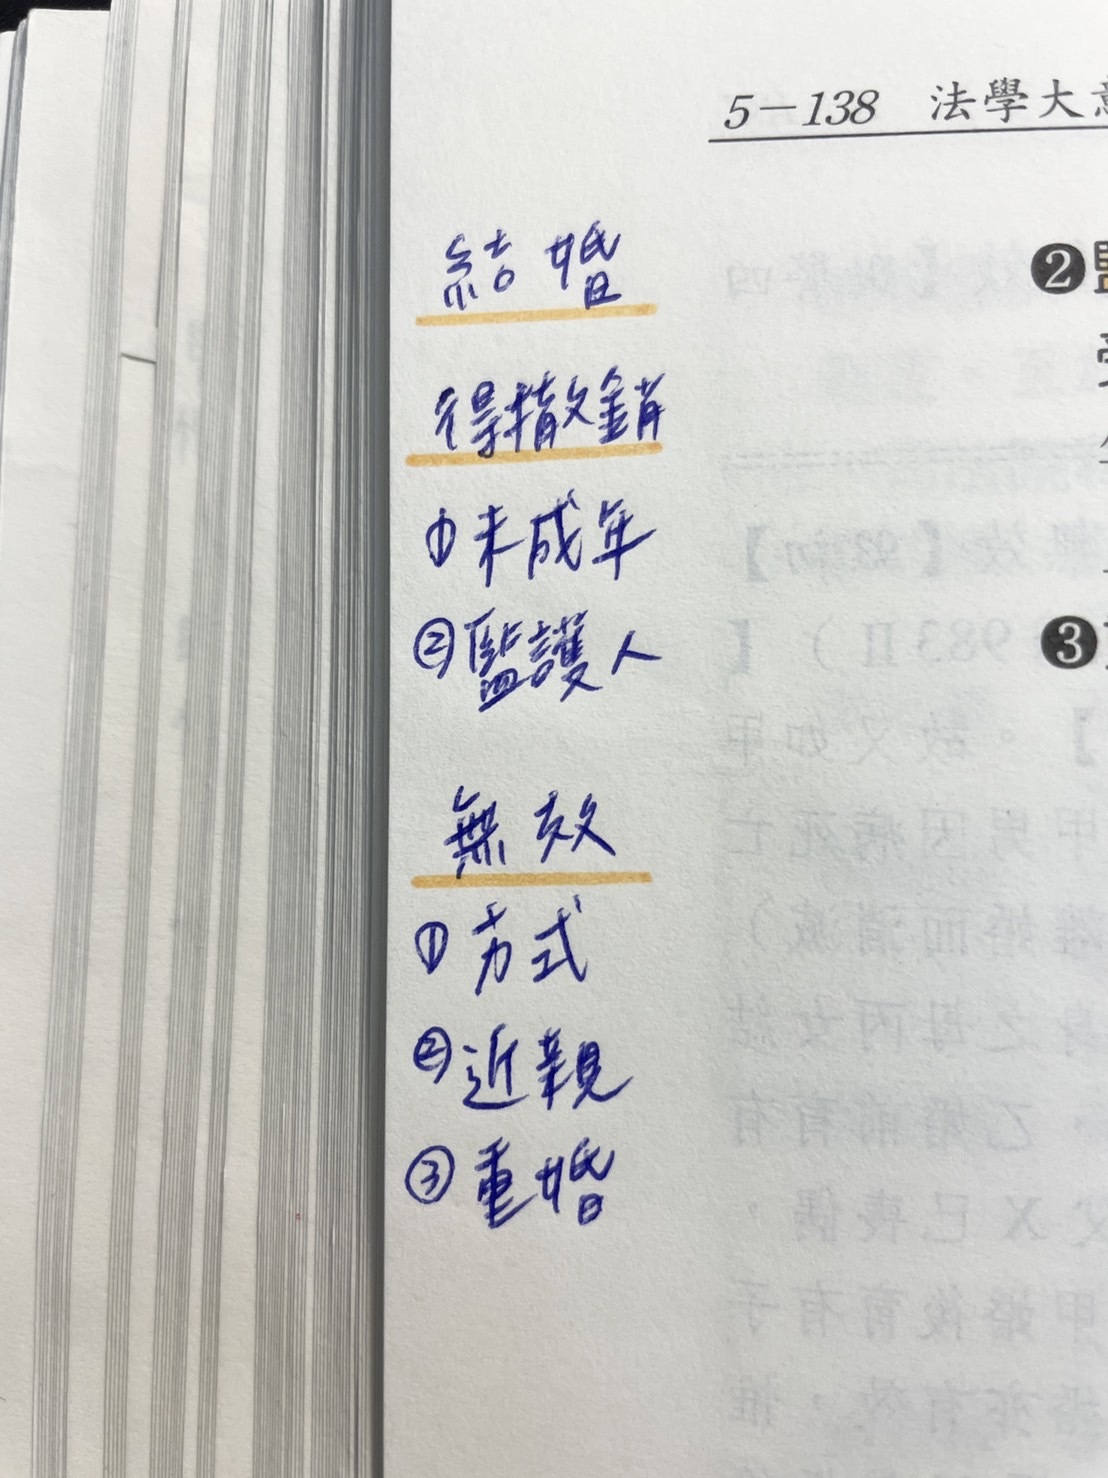 5－138 法學大意
結婚
得撤銷
①未成年
②監護人
無效
①方式
②近親
③重婚
❷監
受
❸